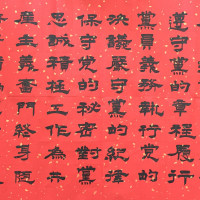 遵守黨的章程履行
黨員義務執行黨的
決議嚴守黨的紀律
保守黨的秘密對黨
忠誠積極工作為共
產主義奮鬥終身隨